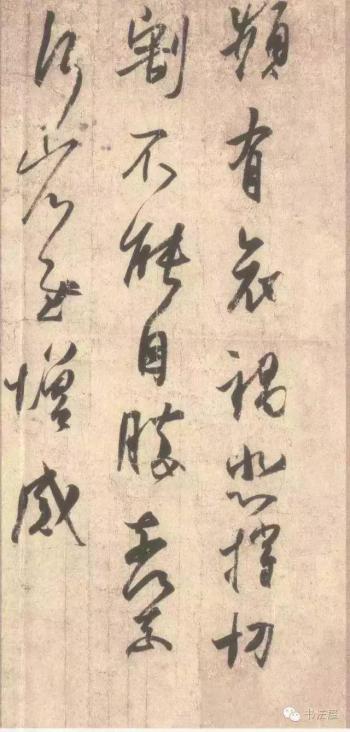 頻有哀禍悲摧切
割不能自勝奈何奈
何省慰增感
书法屋